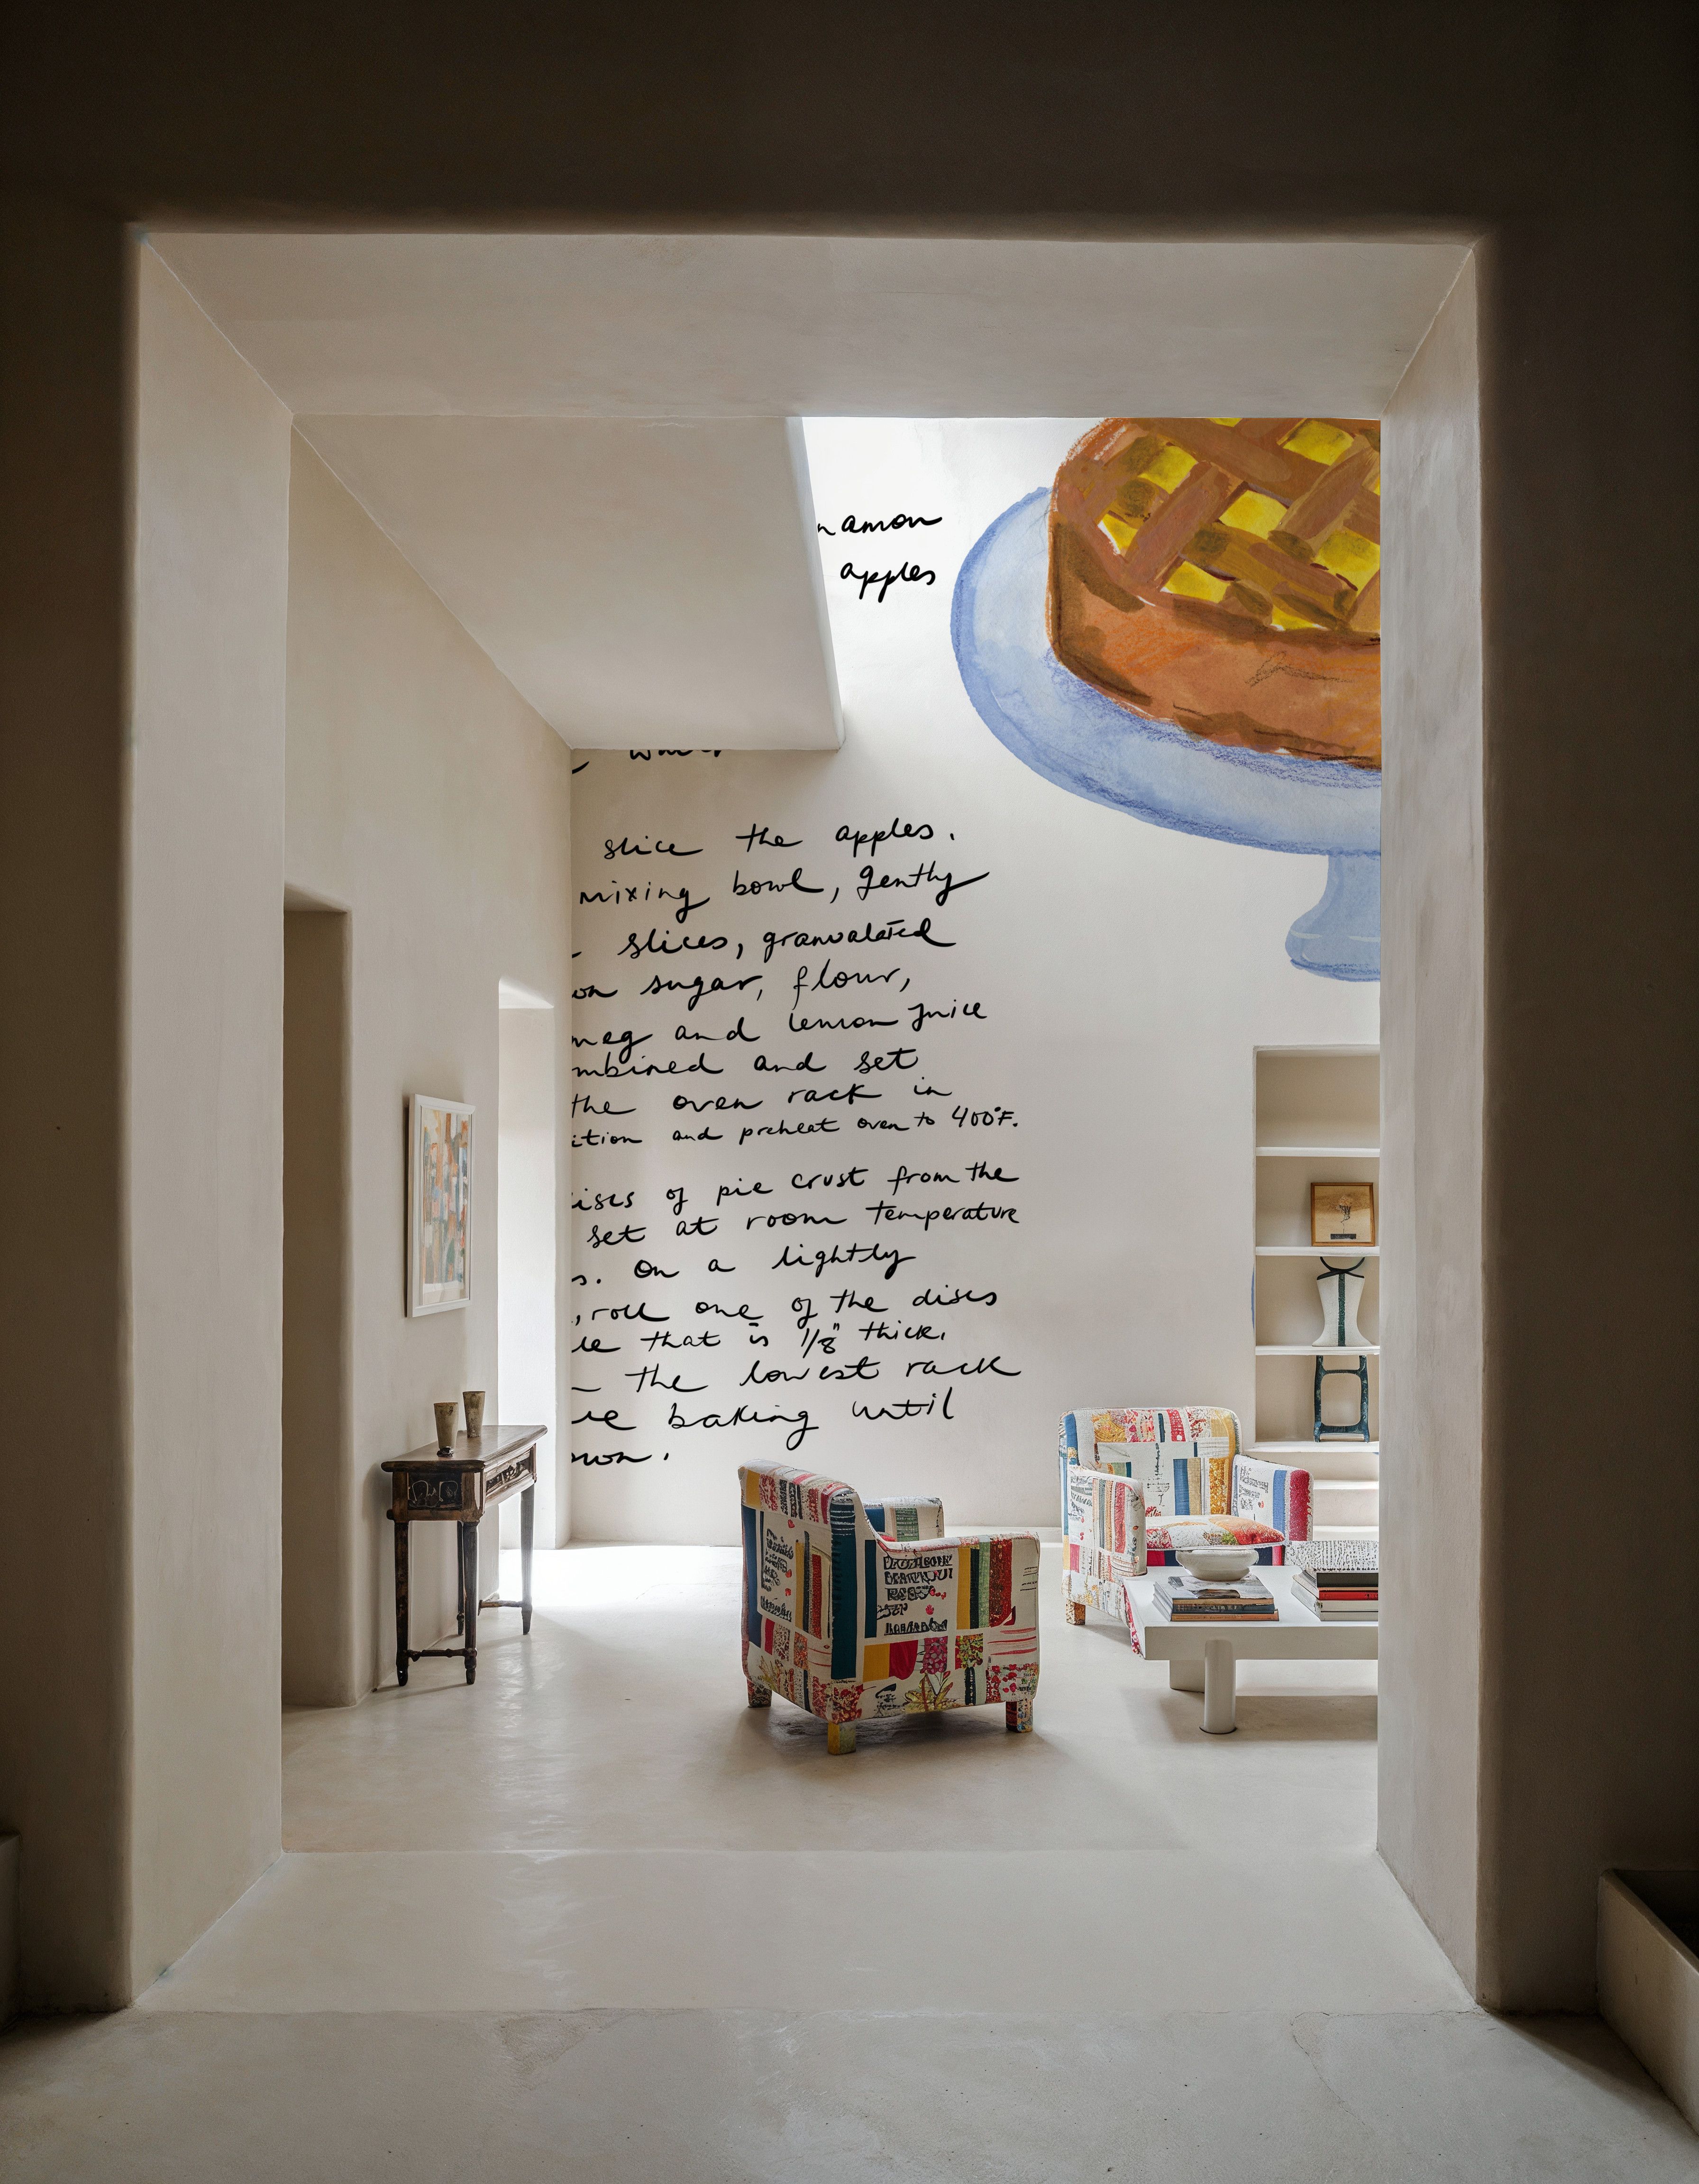 namon
apples
slice the apples.
mixing bowl, gently
slices, granualated
on sugar, flour,
meg and lemon juice
mbined and set
the oven rack in
ition and preheat oven to 400°F.
ises of pie crust from the
set at room temperature
s. On a lightly
, roll one of the discs
le that is 1/8" thick.
the lowest rack
ue baking until
own.